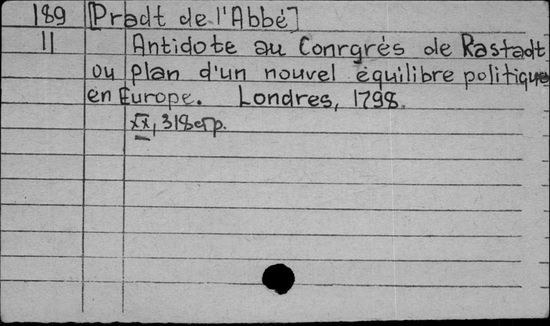 189 [Pradt de l'Abbé]
11 Antidote au Conrgrès de Rastadt
ou plan d'un nouvel équilibre politique
en Europe. Londres, 1798.
XX, 318 p.